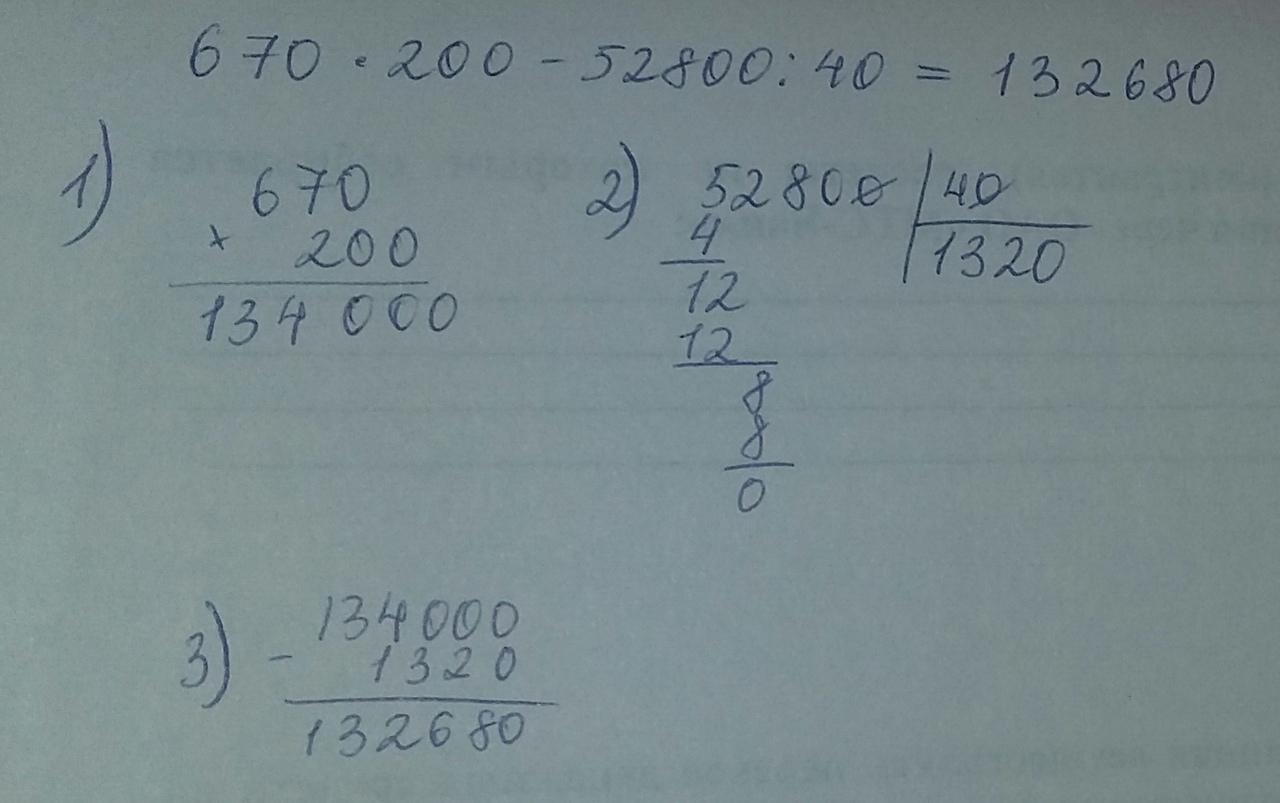 670 · 200 - 52800 : 40 = 132680
1)
670
× 200
134 000
2)
52800 | 40
4
1320
12
12
8
8
0
3)
134000
- 1320
132680